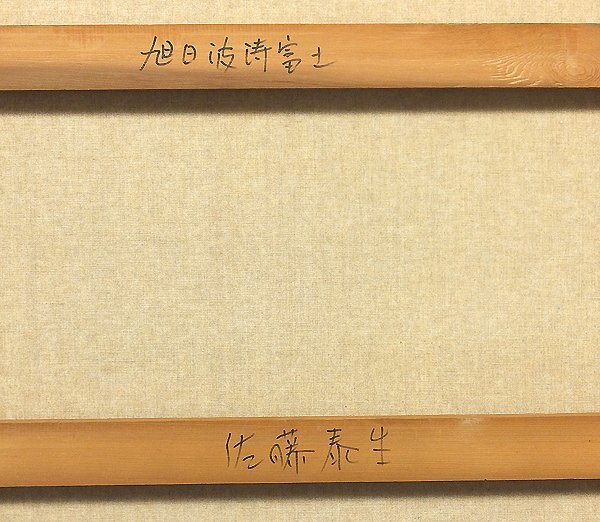 旭日波涛富士
佐藤泰生